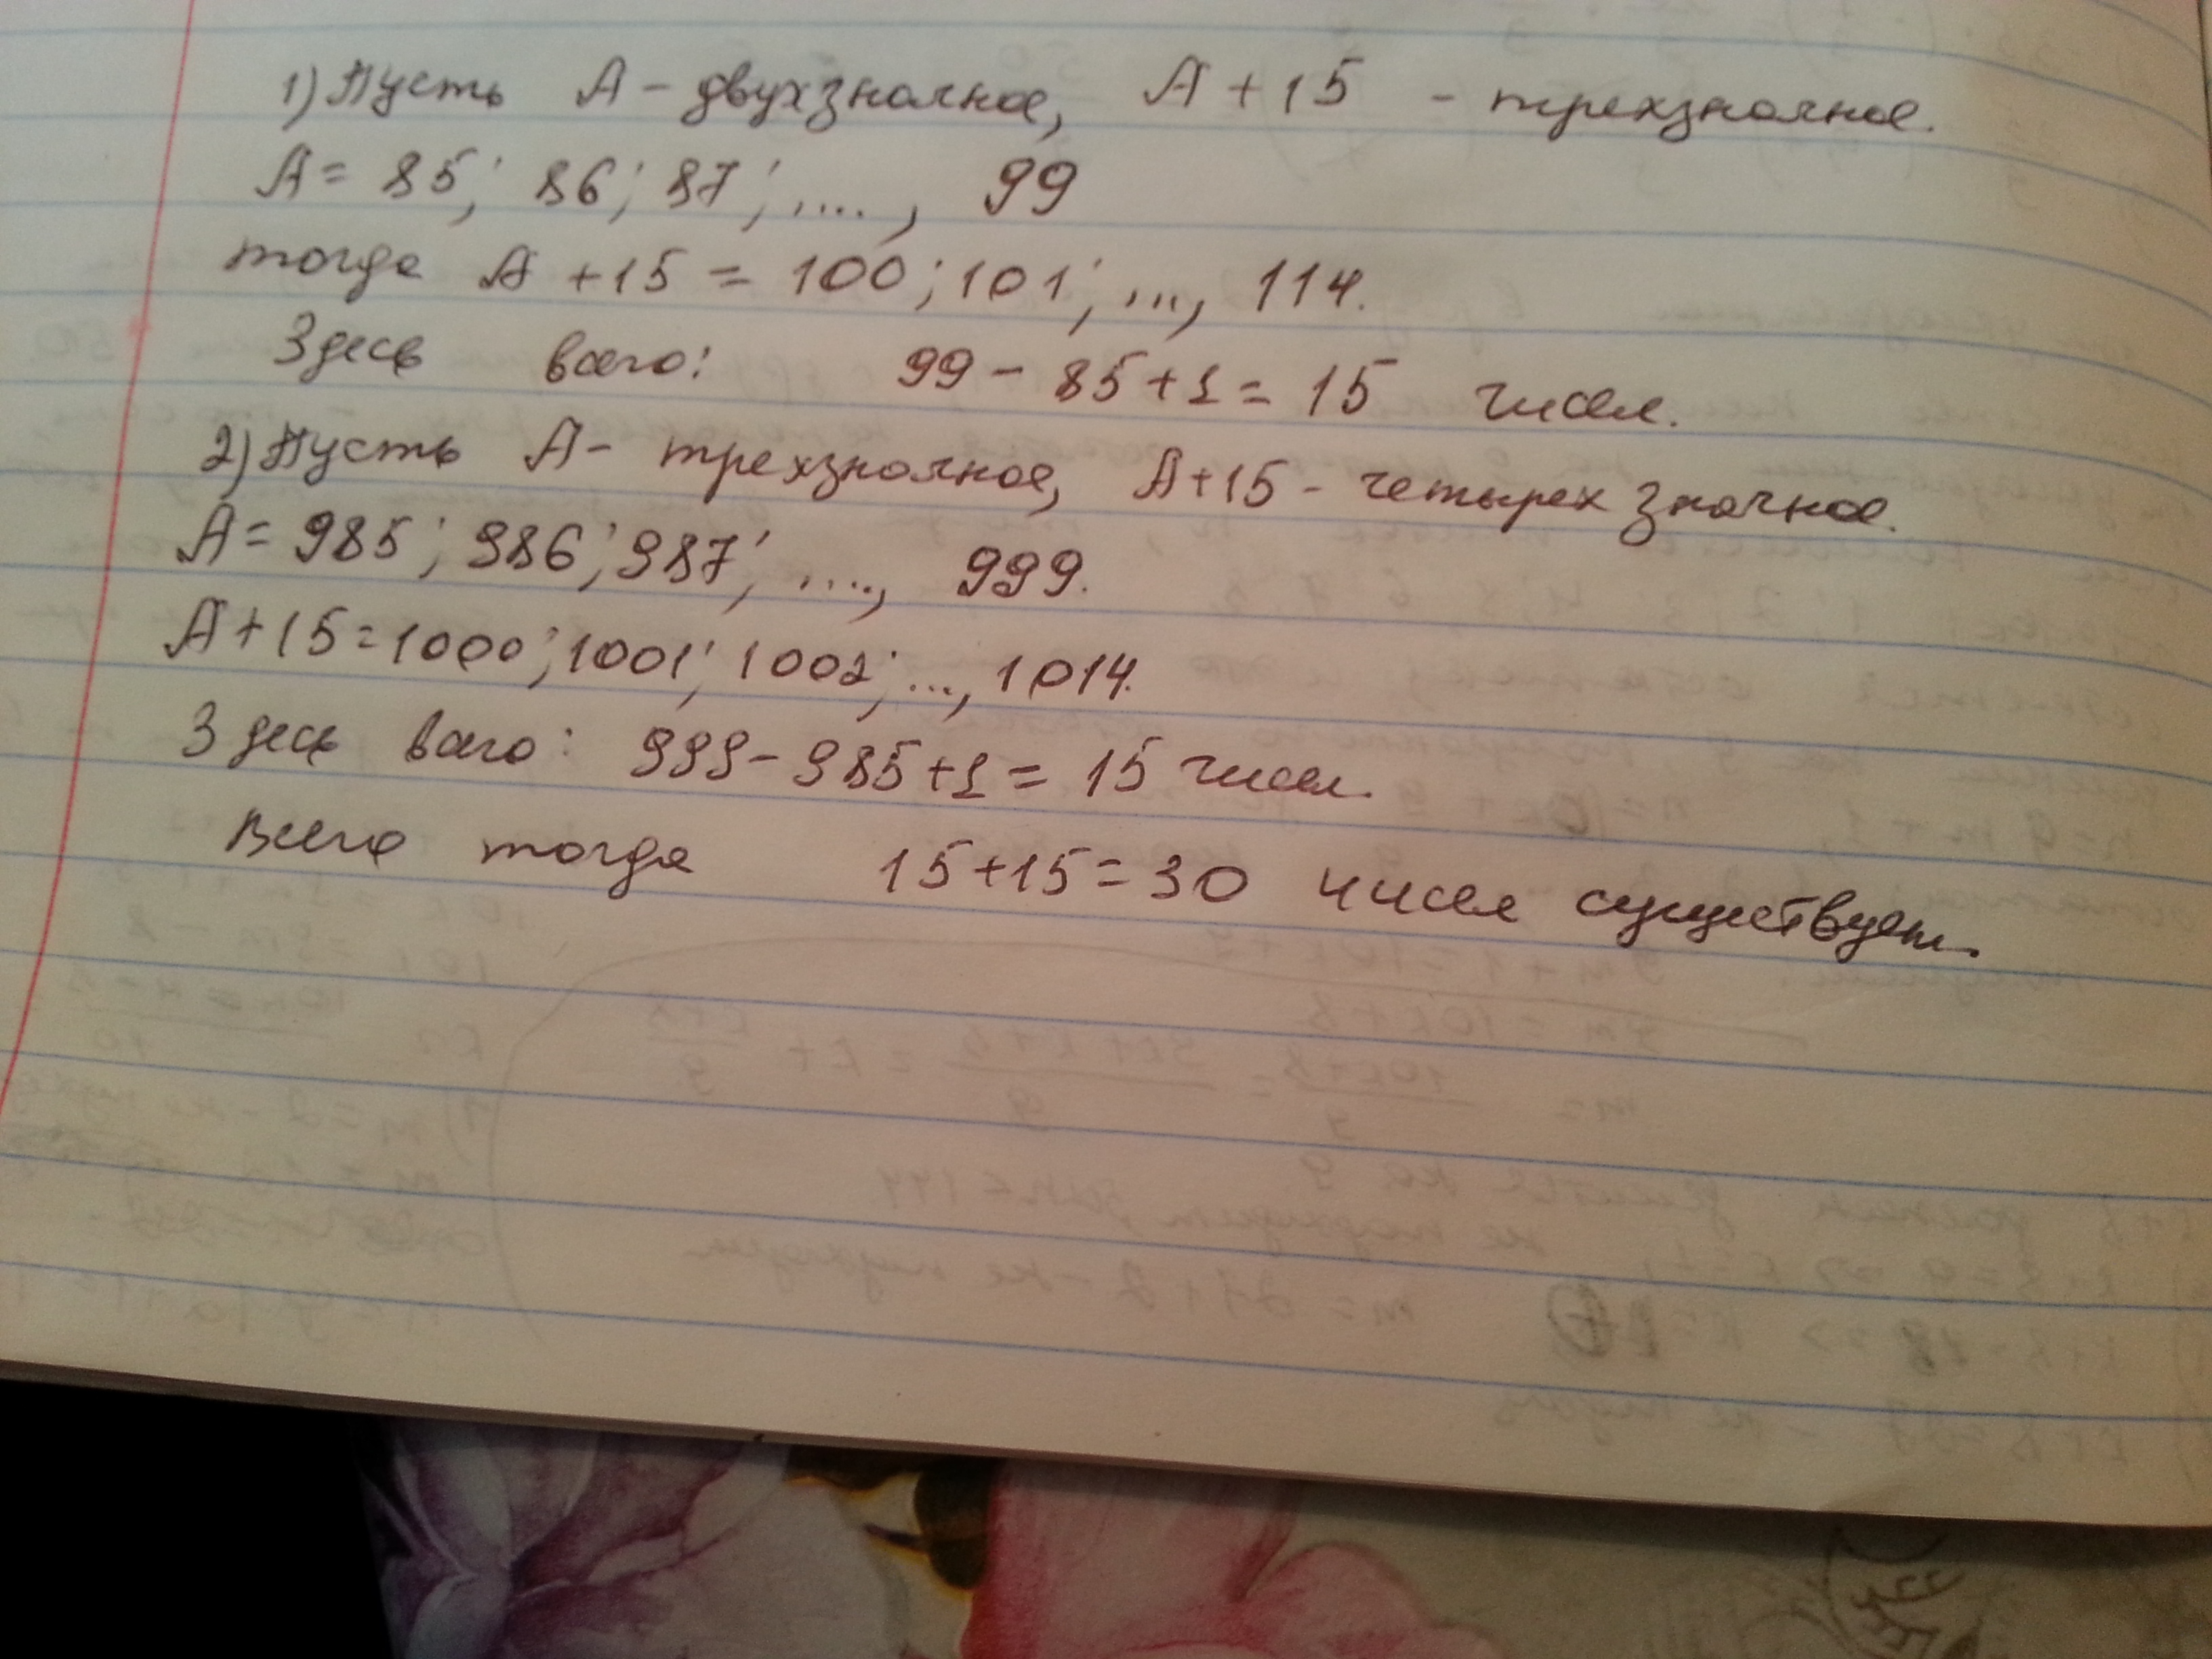 1) Пусть А - двухзначное, А + 15 - трехзначное.
А = 85; 86; 87; ...., 99
тогда А + 15 = 100; 101; ..., 114.
Здесь всего: 99 - 85 + 1 = 15 чисел.
2) Пусть А - трехзначное, А + 15 - четырехзначное.
А = 985; 986; 987; ...., 999.
А + 15 = 1000; 1001; 1002; ..., 1014.
Здесь всего: 999 - 985 + 1 = 15 чисел.
Всего тогда 15 + 15 = 30 чисел существует.